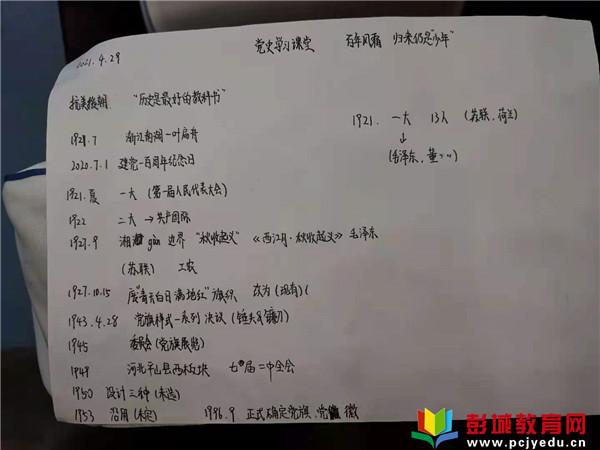 2021.4.29
党史学习课堂 百年风霜 归来仍是"少年"
抗美援朝 "历史是最好的教科书"
1921. 一大 13人 (苏联、荷兰)
↓
(毛泽东、董
1921.7 浙江南湖一叶扁舟
2020.7.1 建党一百周年纪念日
1921.夏 一大 (第一届人民代表大会)
1922 二大 → 共产国际
1927.9 湘 gàn 边界 "秋收起义" 《西江月·秋收起义》毛泽东
(苏联) 工农
1927.10.15 废"青天白日满地红"旗帜 改为 (现有)(
1943.4.28 党旗样式一系列决议 (锤头与镰刀)
1945 委员会(党旗展览)
1949 河北平山县西柏坡 七届二中全会
1950 设计三种(未选)
1953 沿用(未定) 1996.9 正式确定党旗、党徽
彭城教育网
www.pcjyedu.cn